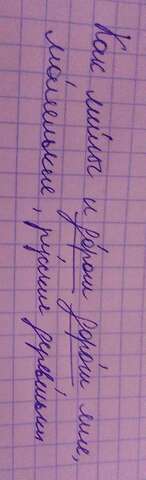 Как милы и дороги дороги мне,
маленькие, русские деревеньки